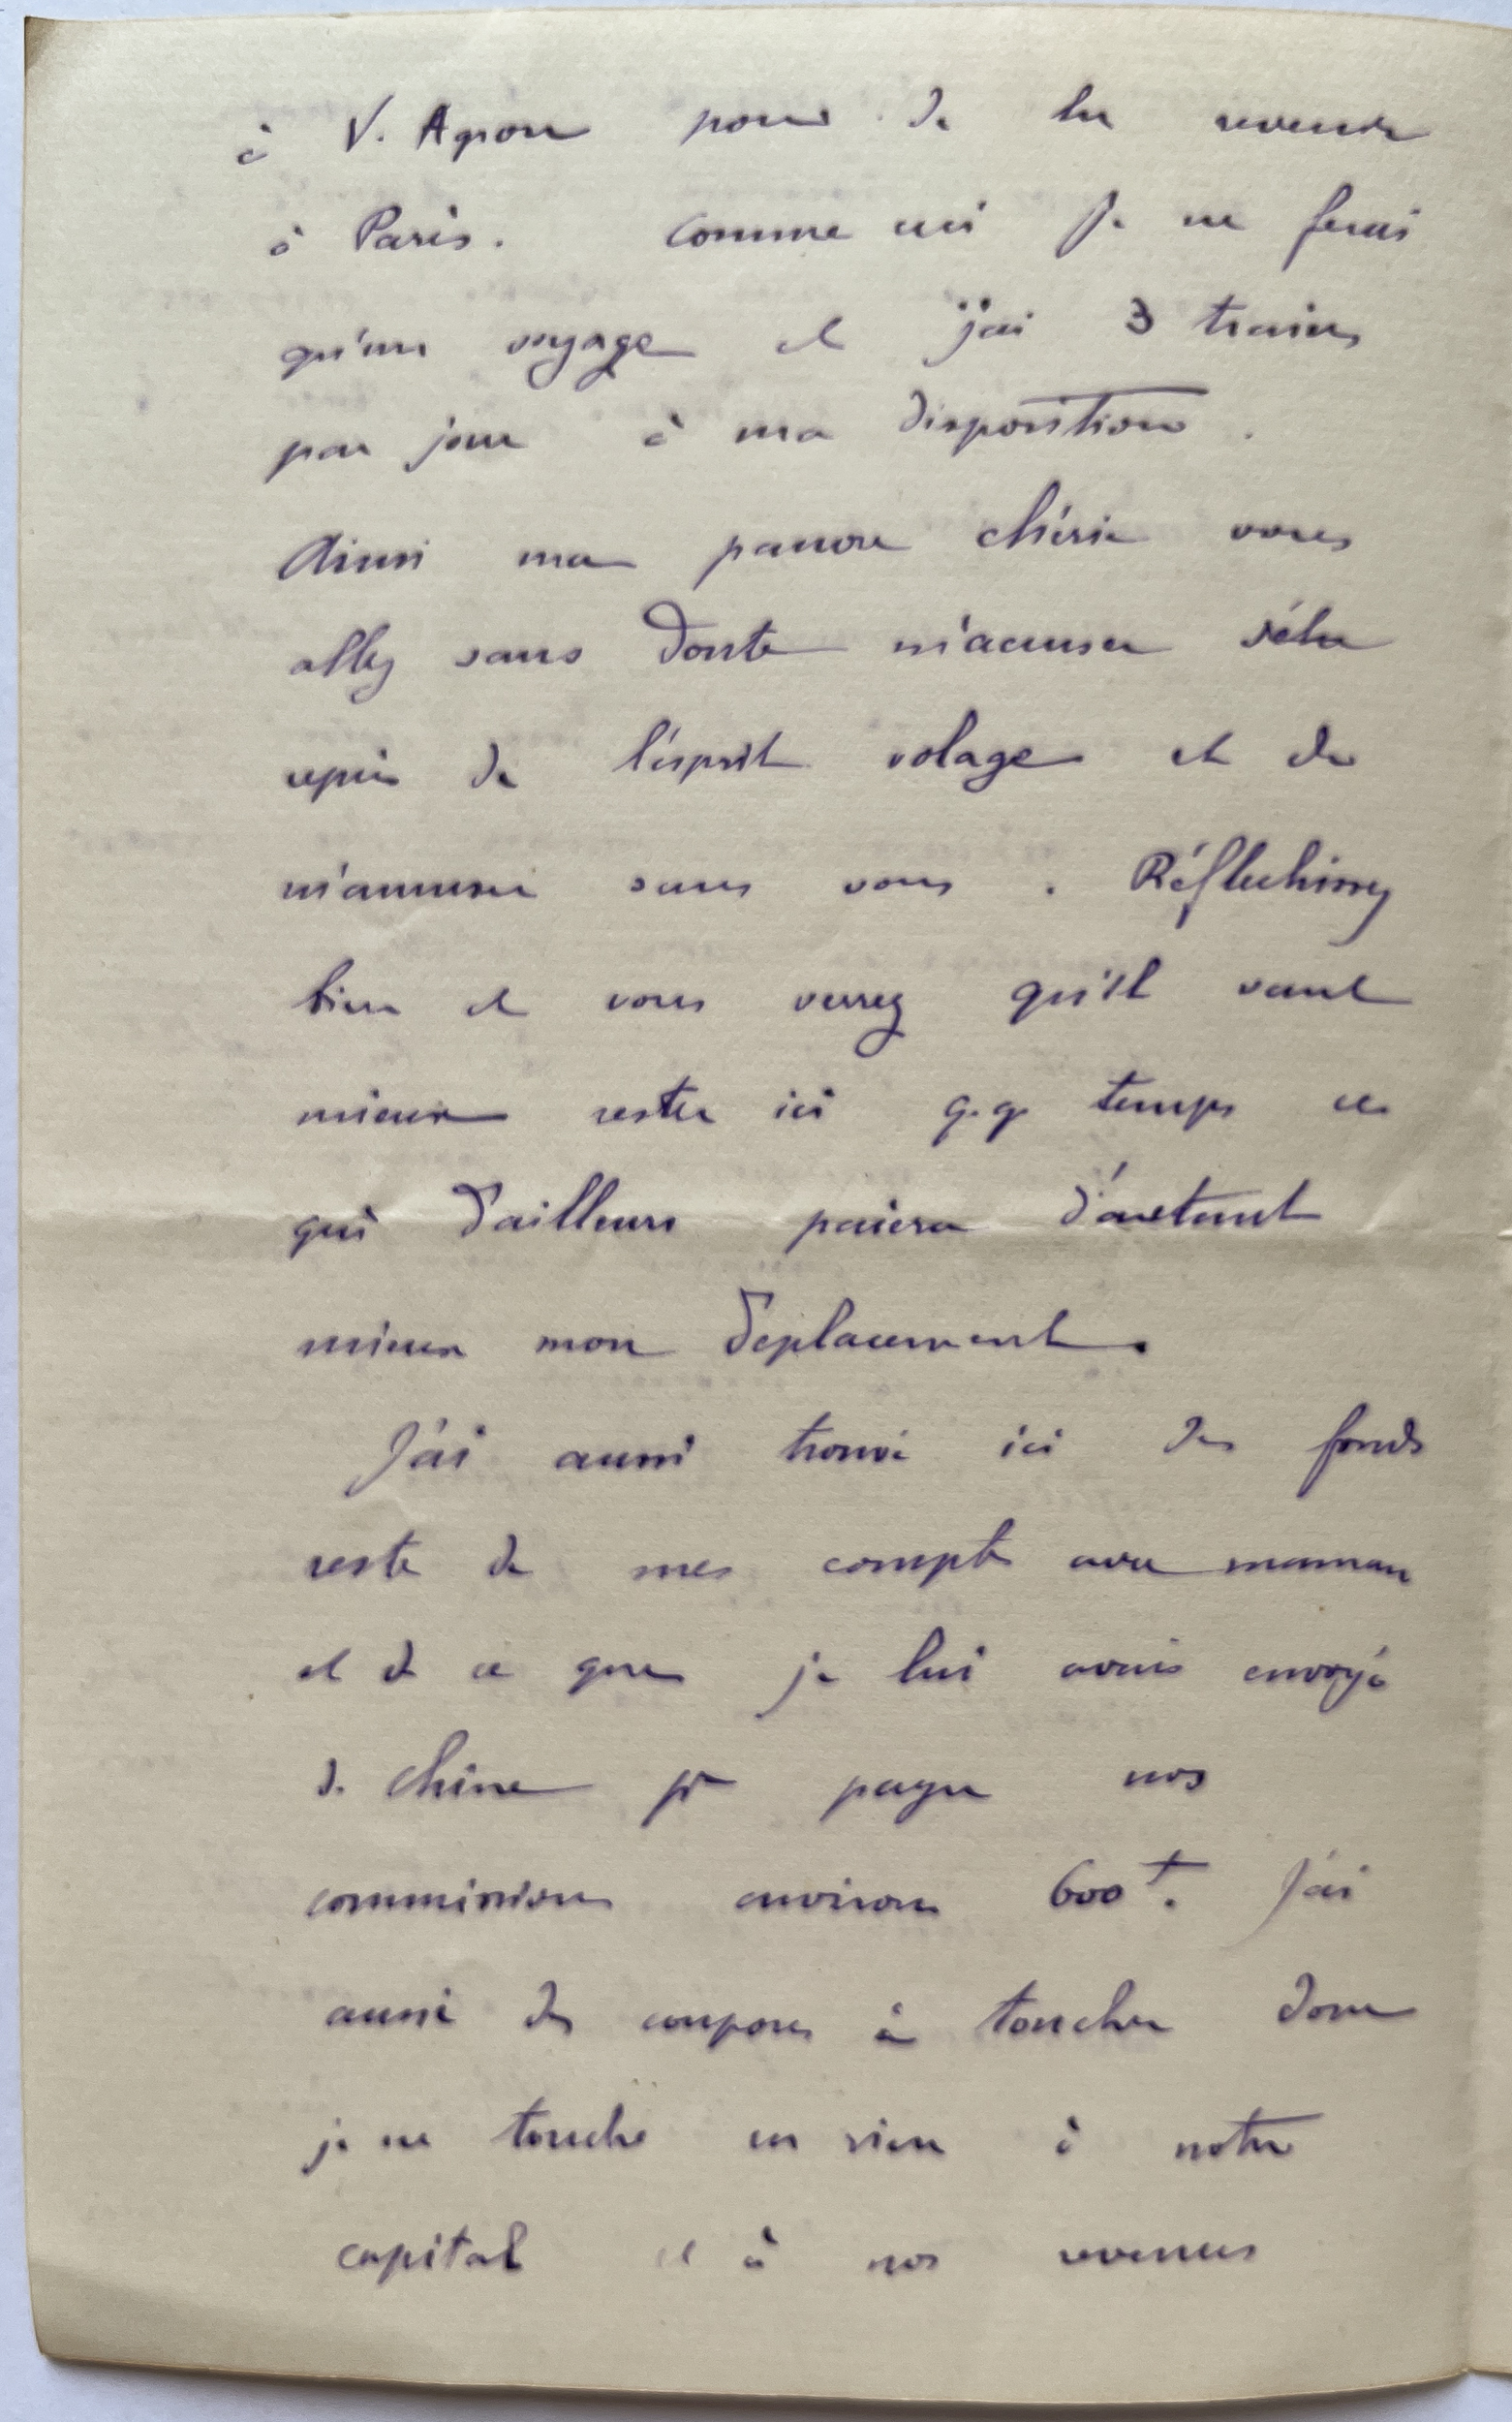 à V. Agon pour de là revenir
à Paris. Comme ceci je ne ferai
qu'un voyage et j'ai 3 trains
par jour à ma disposition.
Ainsi ma pauvre chérie vous
allez sans doute m'accuser d'être
repris de l'esprit volage et de
m'amuser sans vous. Réflechissez
bien et vous verrez qu'il vaut
mieux rester ici q.q. temps ce
qui d'ailleurs paiera d'autant
mieux mon déplacement.
J'ai aussi trouvé ici des fonds
reste de mes compte avec maman
et de ce que je lui avais envoyé
de Chine pr payer nos
commissions environ 600f. J'ai
aussi des coupons à toucher donc
je ne touche en rien à notre
capital et à nos revenus